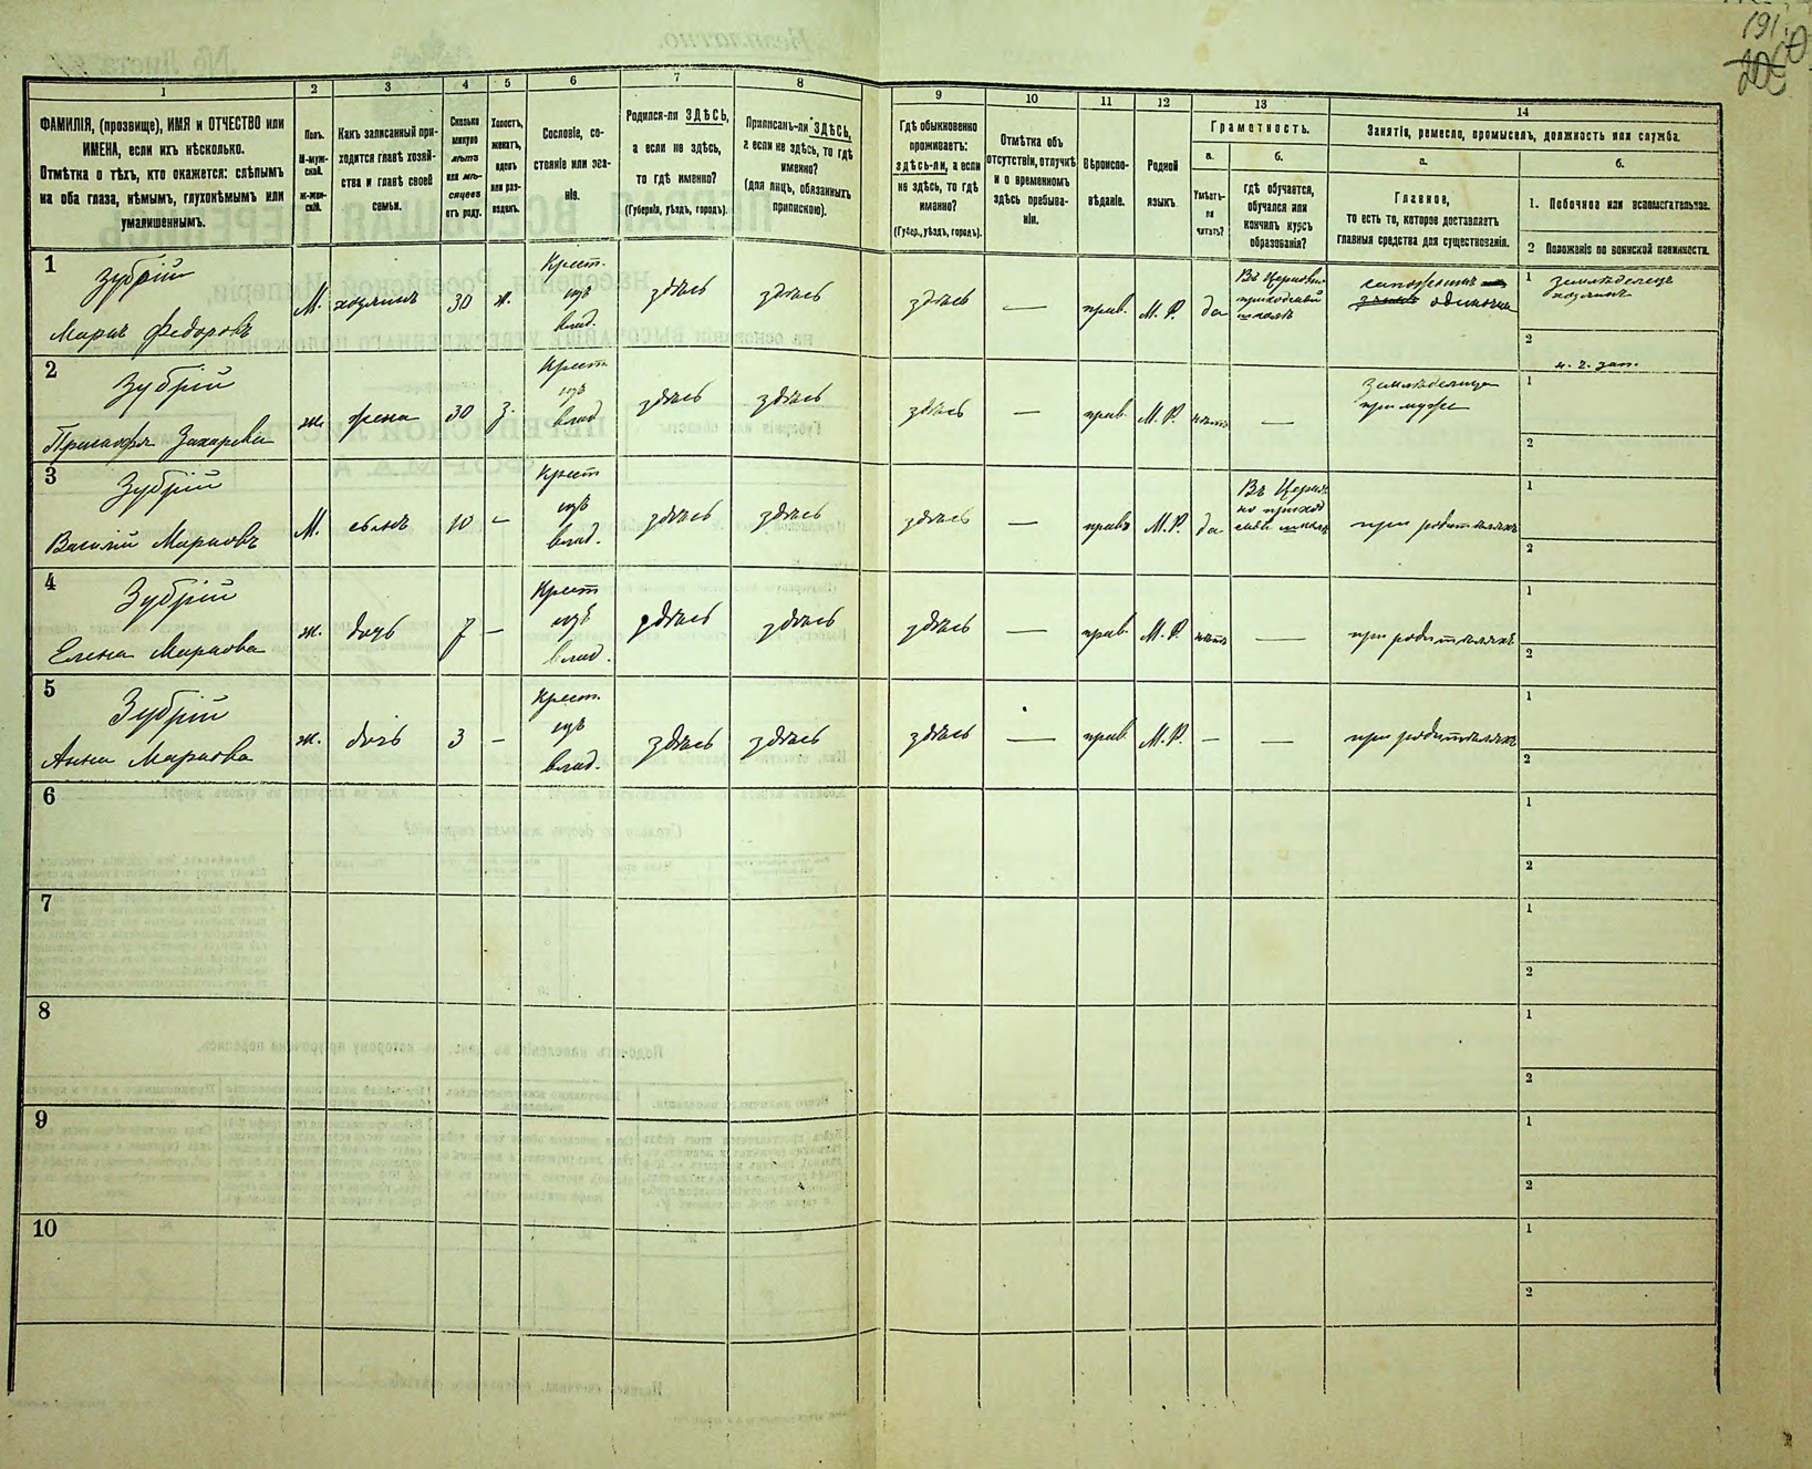 191
1
2
3
4
5
6
7
8
9
10
11
12
13
14
ФАМИЛІЯ, (прозвище), ИМЯ и ОТЧЕСТВО или
ИМЕНА, если ихъ нѣсколько.
Отмѣтка о тѣхъ, кто окажется: слѣпымъ
на оба глаза, нѣмымъ, глухонѣмымъ или
умалишеннымъ.
Полъ.
М-муж-
ской.
Ж-жен-
скій.
Какъ записанный при-
ходится главѣ хозяй-
ства и главѣ своей
семьи.
Сколько
минуло
лѣтъ
или мѣ-
сяцевъ
отъ роду.
Холостъ,
женатъ,
вдовъ
или раз-
веденъ.
Сословіе, со-
стояніе или зва-
ніе.
Родился-ли ЗДѢСЬ,
а если не здѣсь,
то гдѣ именно?
(Губернія, уѣздъ, городъ).
Приписанъ-ли ЗДѢСЬ,
а если не здѣсь, то гдѣ
именно?
(для лицъ, обязанныхъ
припискою).
Гдѣ обыкновенно
проживаетъ:
здѣсь-ли, а если
не здѣсь, то гдѣ
именно?
(Губер., уѣздъ, городъ).
Отмѣтка объ
отсутствіи, отлучкѣ
и о временномъ
здѣсь пребыва-
ніи.
Вѣроиспо-
вѣданіе.
Родной
языкъ.
Грамотность.
а.
Умѣетъ-
ли
читать?
б.
гдѣ обучается,
обучался или
кончилъ курсъ
образованія?
Занятіе, ремесло, промыселъ, должность или служба.
а.
Главное,
то есть то, которое доставляетъ
главныя средства для существованія.
б.
1. Побочное или вспомогательное.
2 Положеніе по воинской повинности.
1
Зубрій
Маркъ Федоровъ
М.
хозяинъ
30
ж.
Крест.
изъ
влад.
здѣсь
здѣсь
здѣсь
—
прав.
М. Р.
да
Въ Церковно
приходской
школѣ
сапожникъ
одиночка
1 земледѣлецъ
хозяинъ
2
н. 2. зап.
2
Зубрій
Захарева
ж.
жена
30
з.
Крест.
изъ
влад
здѣсь
здѣсь
здѣсь
—
прав.
М. Р.
нѣтъ
—
Земледѣлица
при мужѣ
1
2
3
Зубрій
Василій Марковъ
М.
сынъ
10
—
Крест
изъ
влад.
здѣсь
здѣсь
здѣсь
—
прав
М. Р.
да
Въ Церков
но приход
ской школѣ
при родителяхъ
1
2
4
Зубрій
Елена Маркова
ж.
дочь
7
—
Крест
изъ
влад.
здѣсь
здѣсь
здѣсь
—
прав.
М. Р.
нѣтъ
—
при родителяхъ
1
2
5
Зубрій
Анна Маркова
ж.
дочь
3
—
Крест.
изъ
влад.
здѣсь
здѣсь
здѣсь
—
прав
М. Р.
—
—
при родителяхъ
1
2
6
1
2
7
1
2
8
1
2
9
1
2
10
1
2